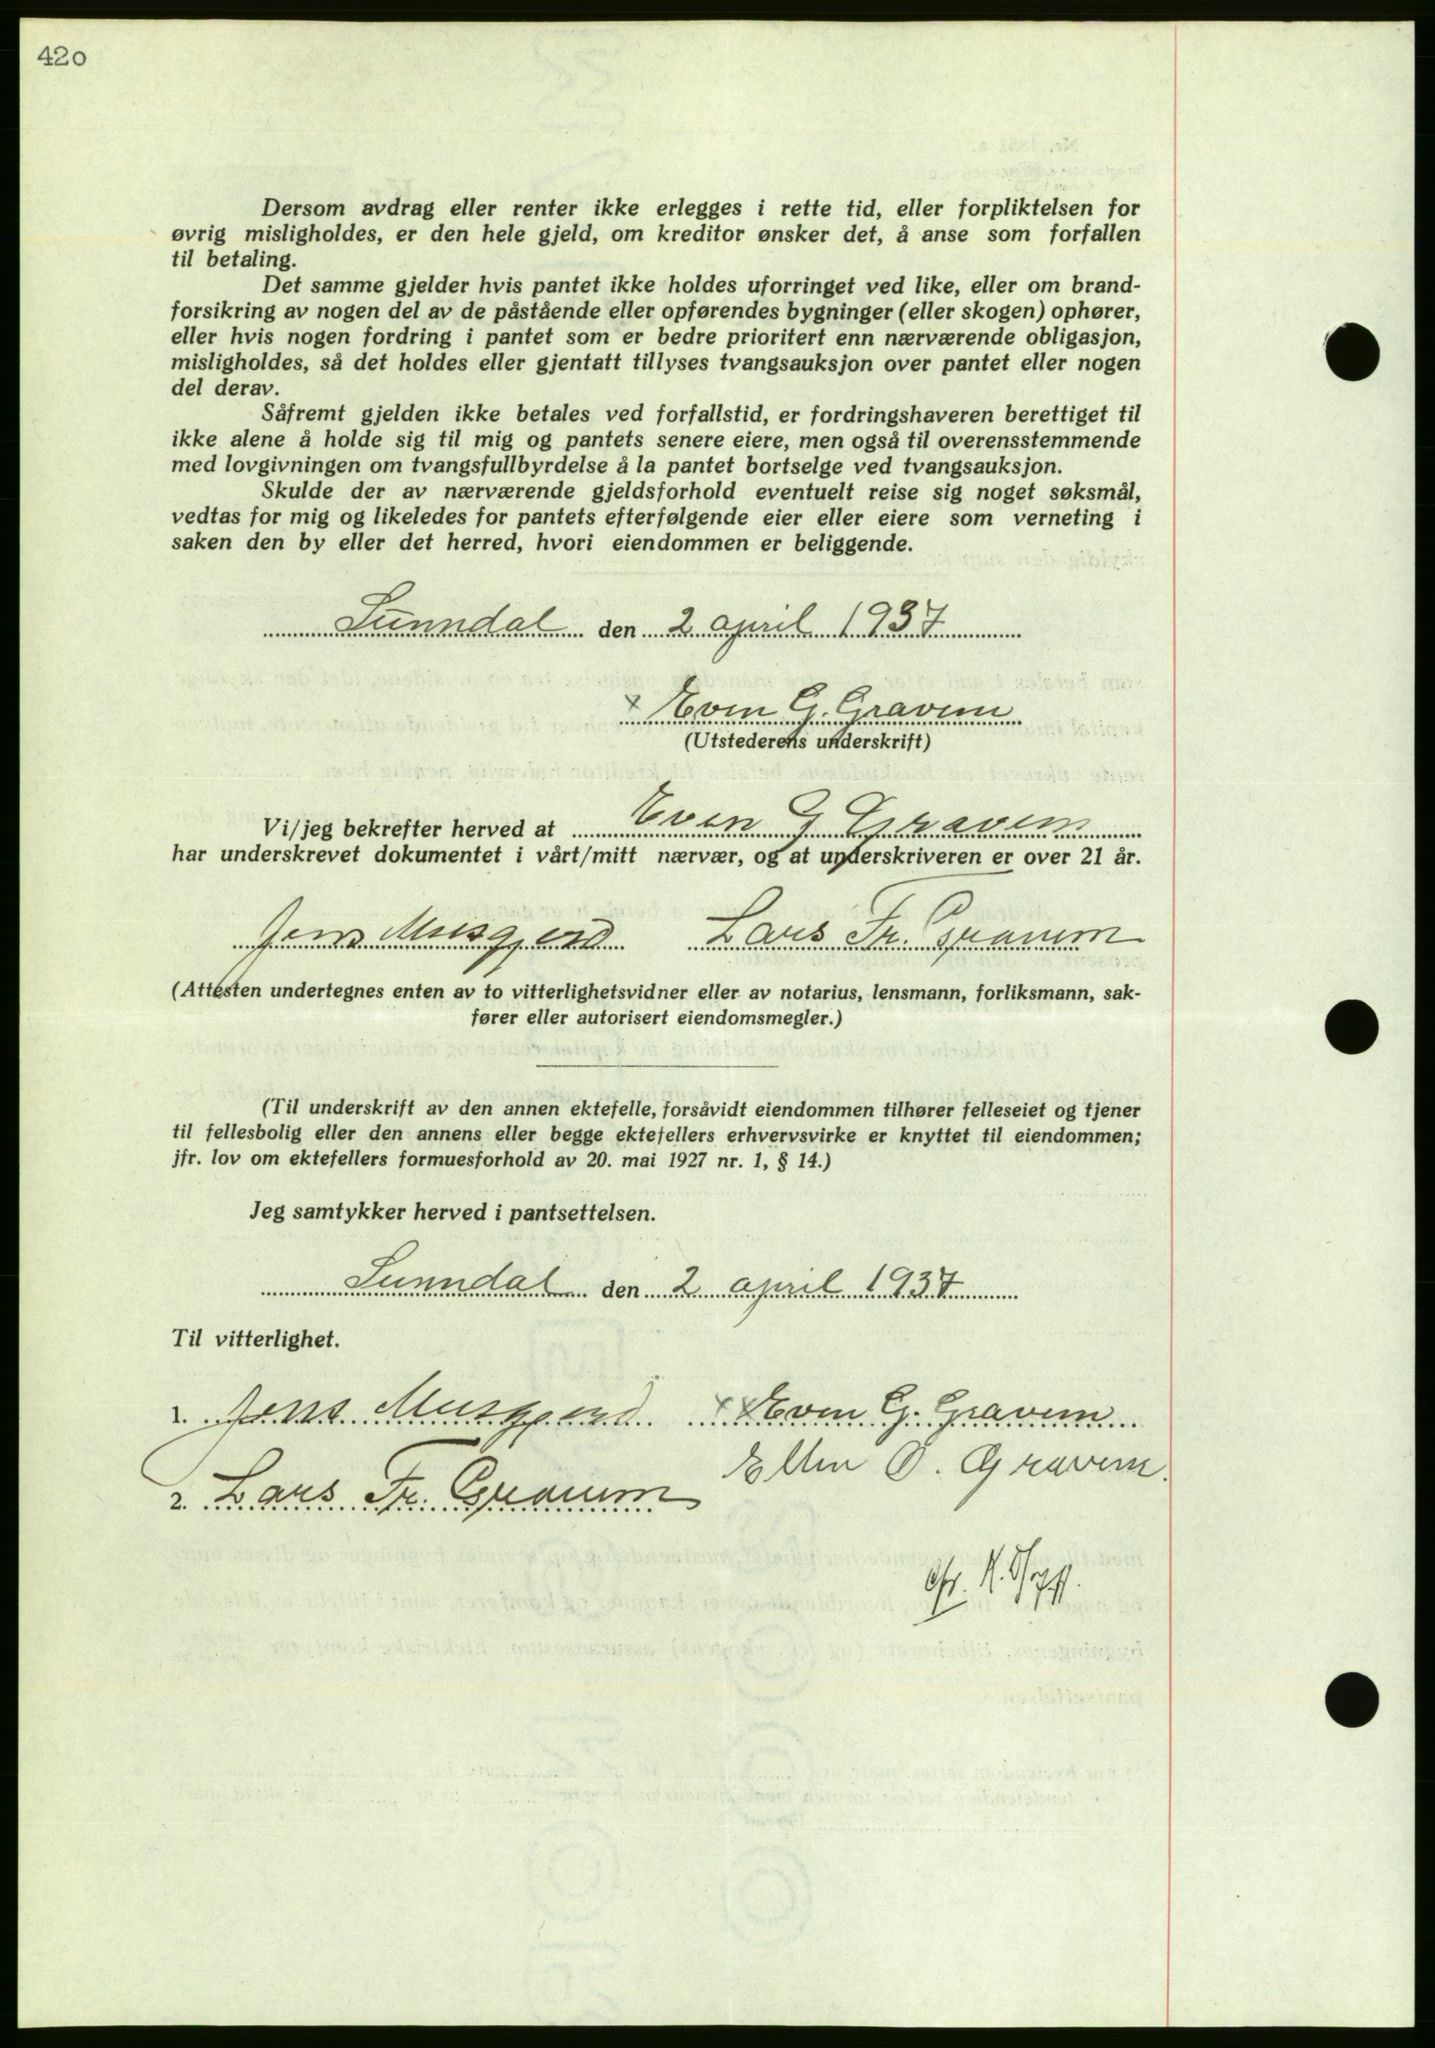 420
Dersom avdrag eller renter ikke erlegges i rette tid, eller forpliktelsen for
øvrig misligholdes, er den hele gjeld, om kreditor ønsker det, å anse som forfallen
til betaling.
Det samme gjelder hvis pantet ikke holdes uforringet ved like, eller om brand-
forsikring av nogen del av de påstående eller opførendes bygninger (eller skogen) ophører,
eller hvis nogen fordring i pantet som er bedre prioritert enn nærværende obligasjon,
misligholdes, så det holdes eller gjentatt tillyses tvangsauksjon over pantet eller nogen
del derav.
Såfremt gjelden ikke betales ved forfallstid, er fordringshaveren berettiget til
ikke alene å holde sig til mig og pantets senere eiere, men også til overensstemmende
med lovgivningen om tvangsfullbyrdelse å la pantet bortselge ved tvangsauksjon.
Skulde der av nærværende gjeldsforhold eventuelt reise sig noget søksmål,
vedtas for mig og likeledes for pantets efterfølgende eier eller eiere som verneting i
saken den by eller det herred, hvori eiendommen er beliggende.
Sunndal den 2 april 1937
x Even G. Gravem
(Utstederens underskrift)
Vi/jeg bekrefter herved at Even G Gravem
har underskrevet dokumentet i vårt/mitt nærvær, og at underskriveren er over 21 år.
Jens Musgjerd Lars Fr. Gravem
(Attesten undertegnes enten av to vitterlighetsvidner eller av notarius, lensmann, forliksmann, sak-
fører eller autorisert eiendomsmegler.)
(Til underskrift av den annen ektefelle, forsåvidt eiendommen tilhører felleseiet og tjener
til fellesbolig eller den annens eller begge ektefellers erhvervsvirke er knyttet til eiendommen;
jfr. lov om ektefellers formuesforhold av 20. mai 1927 nr. 1, § 14.)
Jeg samtykker herved i pantsettelsen.
Sunndal den 2 april 1937
Til vitterlighet.
1. Jens Musgjerd xx Even G. Gravem
Ellen O. Gravem.
2. Lars Fr. Gravem